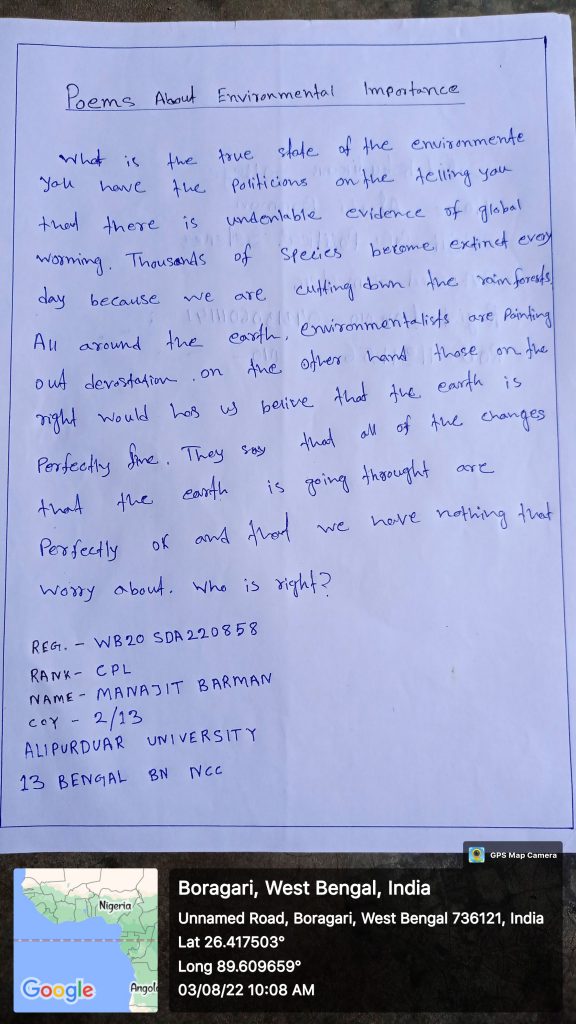 Poems About Environmental Importance
What is the true state of the environmente
You have the Politicions on the telling you
that there is undenlable evidence of global
worming. Thousands of species become extinct every
day because we are cutting down the rainforests.
All around the earth, environmentalists are Painting
out devastation. on the other hand those on the
right would has us belive that the earth is
Perfectly fine. They say that all of the changes
that the earth is going throught are
Perfectly ok and that we have nothing that
worry about. Who is right?
REG. - WB20 SDA220858
RANK - CPL
NAME - MANAJIT BARMAN
COY - 2/13
ALIPURDUAR UNIVERSITY
13 BENGAL BN NCC
GPS Map Camera
Nigeria
Angola
Google
Boragari, West Bengal, India
Unnamed Road, Boragari, West Bengal 736121, India
Lat 26.417503°
Long 89.609659°
03/08/22 10:08 AM